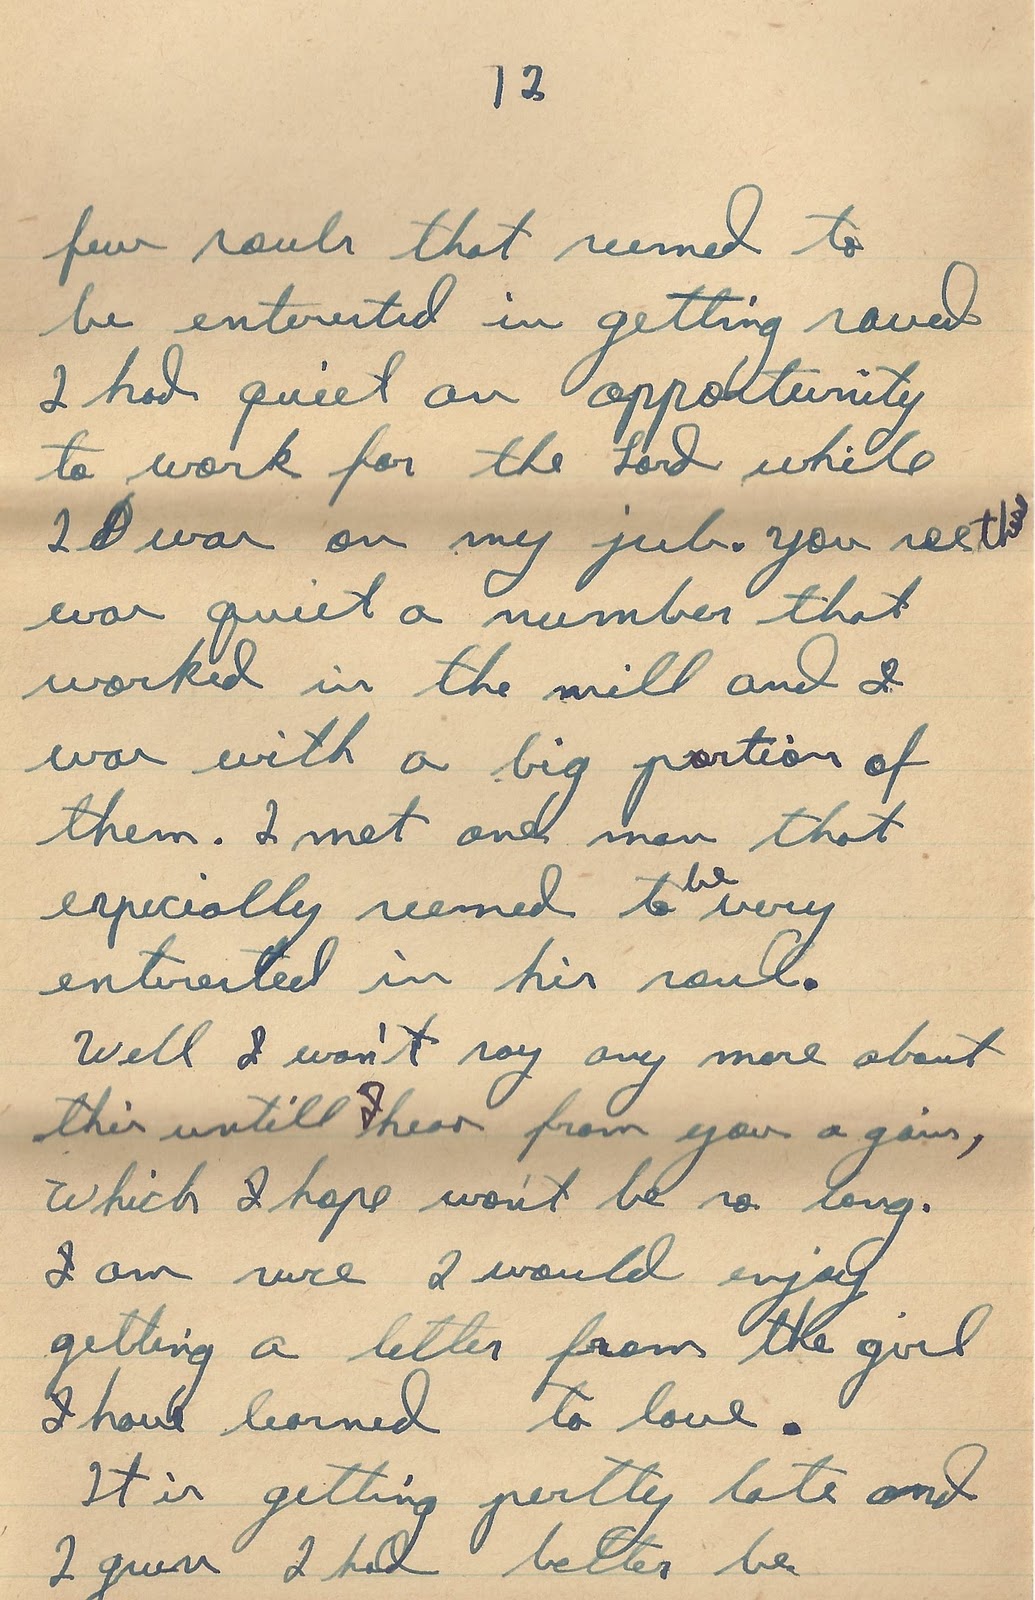 12
few souls that seemed to
be enterested in getting saved
I had quiet an opportunity
to work for the Lord while
I was on my job. You see
was quiet a number that
worked in the mill and I
was with a big portion of
them. I met one man that
especially seemed to be very
enterested in his soul.
Well I won't say any more about
this untill I hear from you again,
which I hope won't be so long.
I am sure I would enjoy
getting a letter from the girl
I have learned to love.
It is getting pertty late and
I guess I had better be